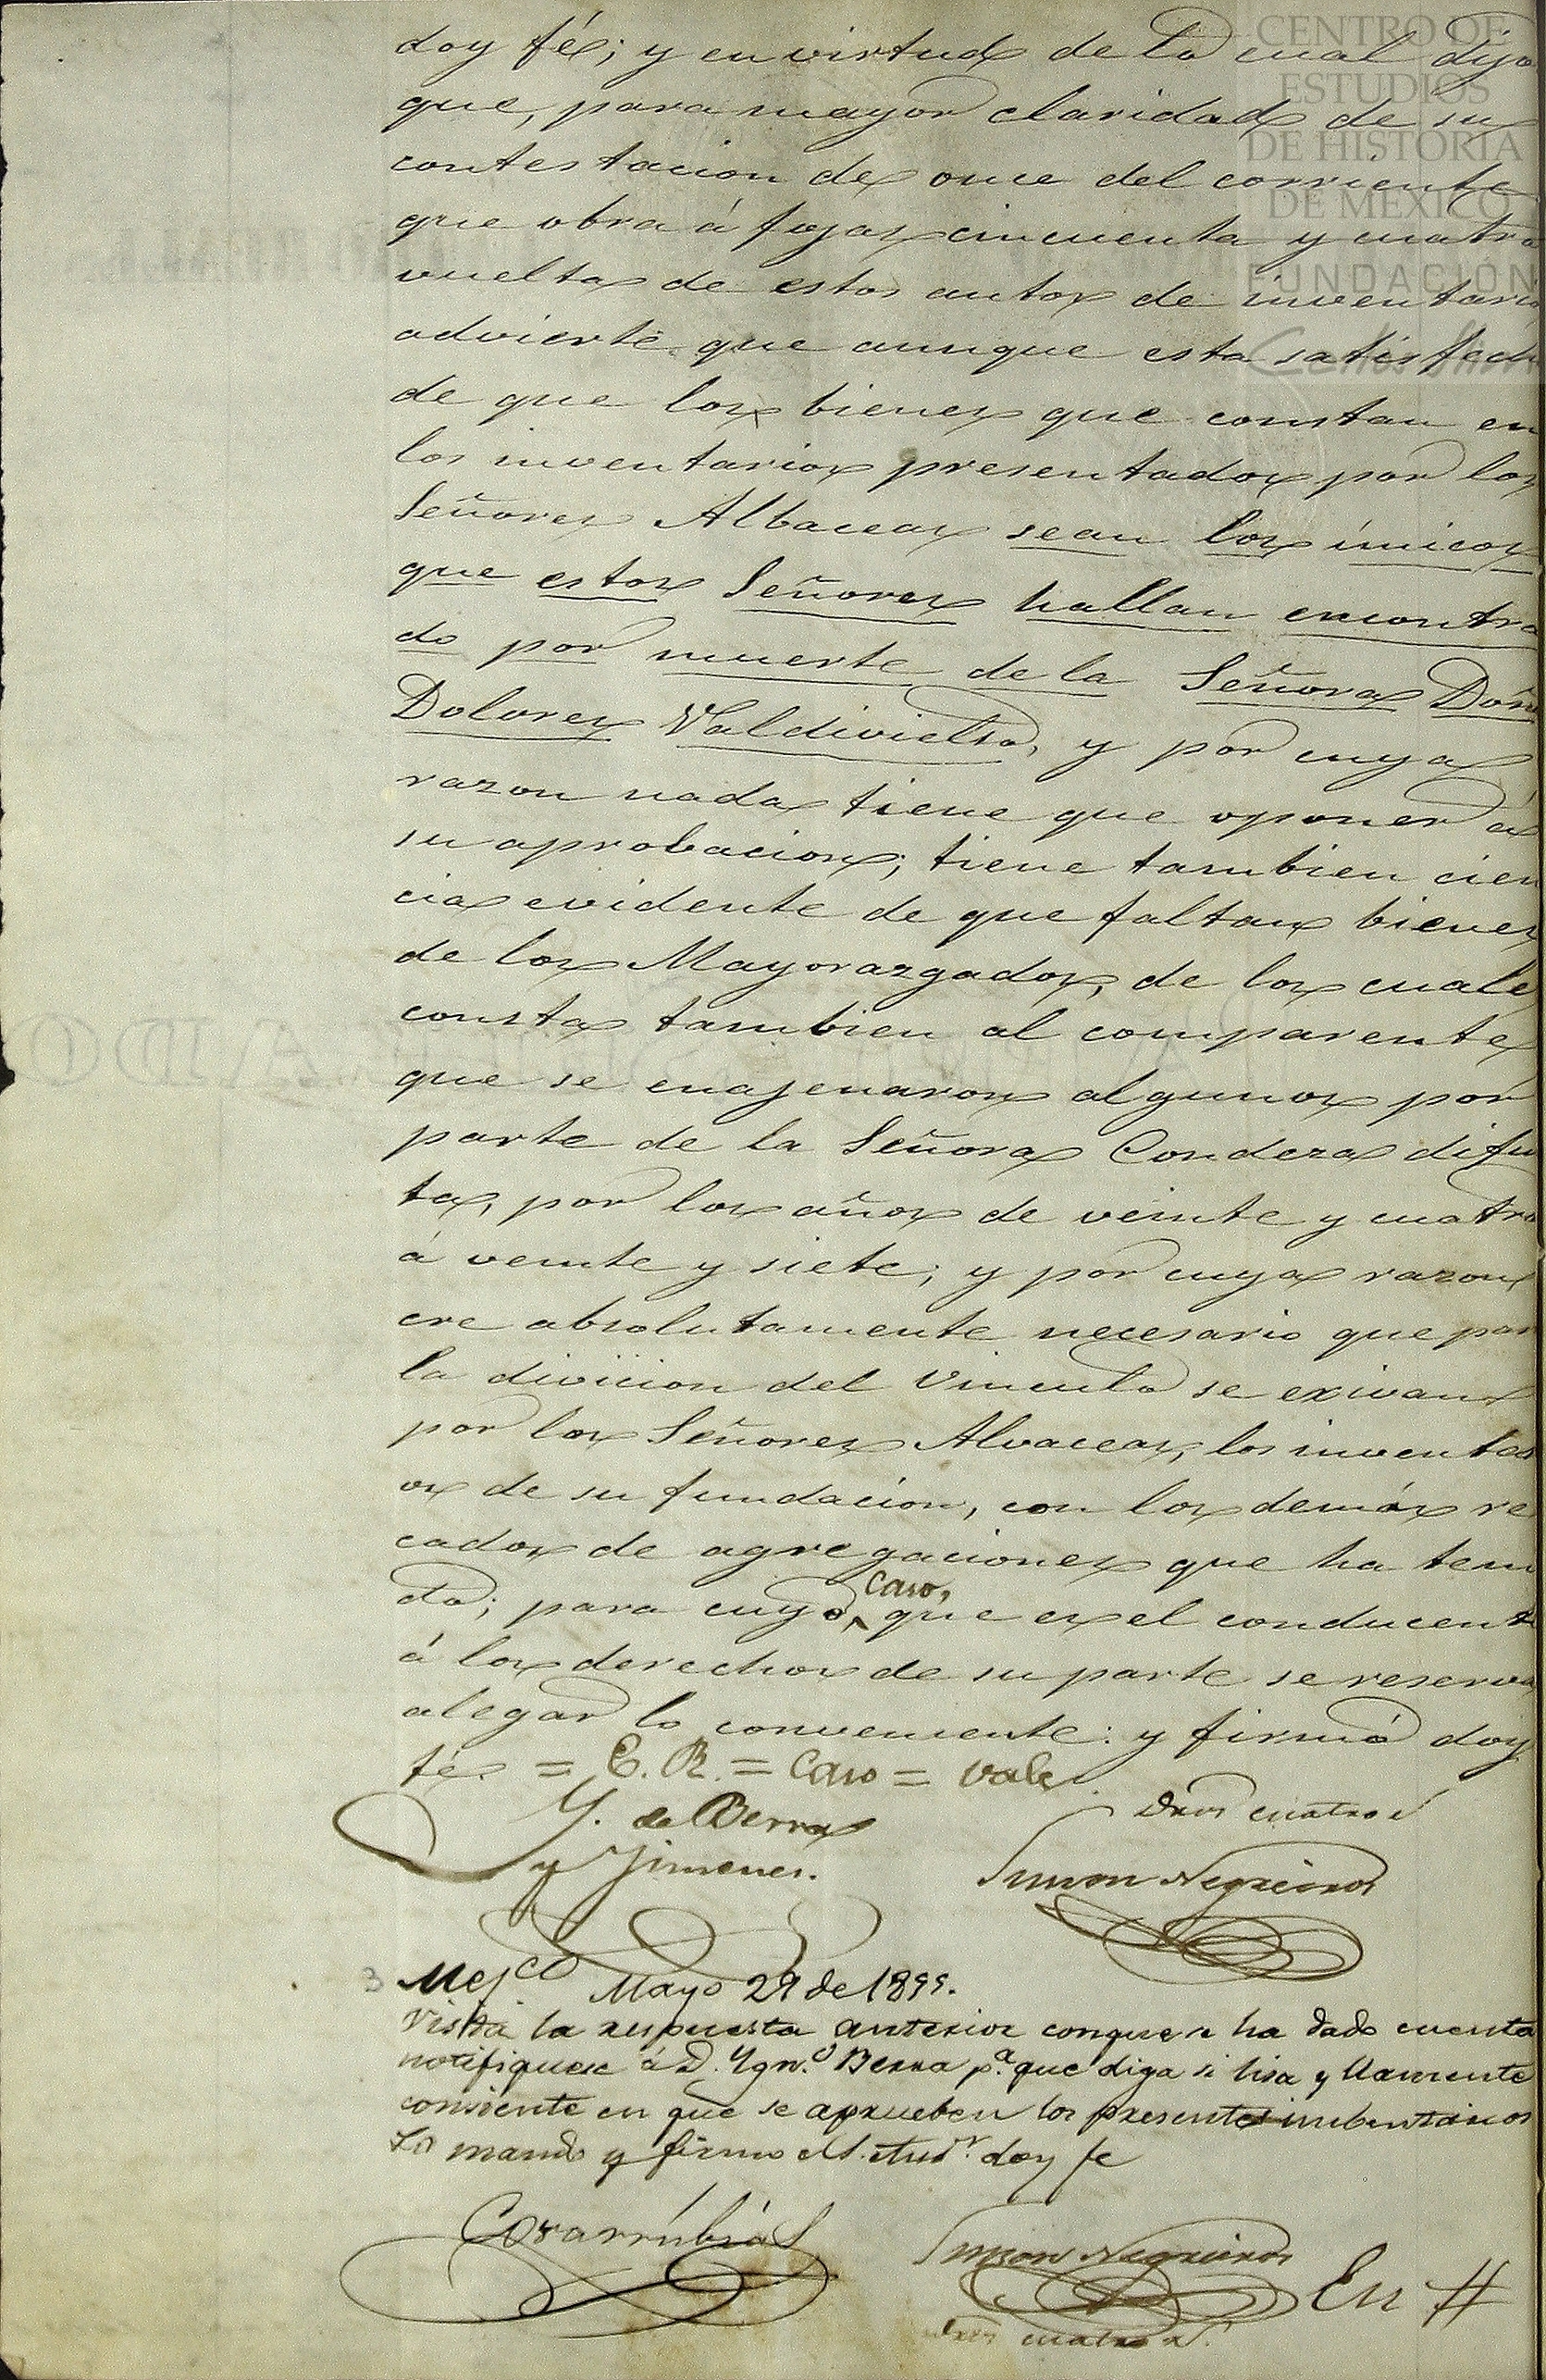 doy fé; y en virtud de lo cual dijo
que, para mayor claridad de su
contestacion de once del corriente
que obra á fojas cincuenta y cuatro
vuelta de estos autos de inventario
advierte que aunque esta satisfech
de que los bienes que constan en
los inventarios presentados por los
Señores Albaceas sean los únicos
que estos Señores hallan encontra
do por muerte de la Señora Doñ
Dolores Valdivielso, y por cuya
razon nada tiene que oponer á
su aprobacion; tiene tambien cien
cia evidente de que faltan bienes
de los Mayorazgados, de los cuale
consta tambien al comparente
que se enajenaron algunos por
parte de la Señora Condeza difu
ta, por los años de veinte y cuatro
á veinte y siete; y por cuya razon
cre absolutamente necesario que par
la divicion del Vinculo se exivan
por los Señores Alvaceas, los inventa
os de su fundacion, con los demás re
cados de agregaciones que ha teni
do; para cuyo caso, que es el conducent
á los derechos de su parte se reserva
alegar lo conveniente: y firmó doy
fé. = E. R. = Caso = vale
Y. de Berra
y Jimenes.
dros cuatro r
Simon Negreiros
3 Mejco Mayo 29 de 1855.
Vista la respuesta anterior con que se ha dado cuenta
notifiquese á D. Ygn.o Berra p.a que diga si lisa y llanamente
consiente en que se aprueben los presentes inbentarios
Lo mandó y firmo el S. Jues. doy fe
Covarrúbias
Simon Negreiros
En #
dros cuatro r.
CENTRO DE
ESTUDIOS
DE HISTORIA
DE MÉXICO
FUNDACIÓN